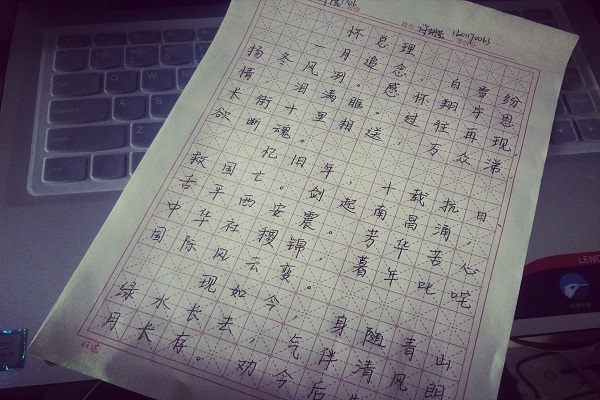 姓名
怀总理
一月追念，白雪纷
扬冬风冽。感怀翔宇恩
情，泪满眶。过往再现，
长街十里相送，万众涕
欲断魂。
忆旧年，十载抗日
救国亡。剑起南昌涌，
平西安震。芳华苦心
中华社稷锦，暮年叱咤
国际风云变。
现如今，身随青山
绿水长去，气伴清风朗
月长存。劝今后
LENO